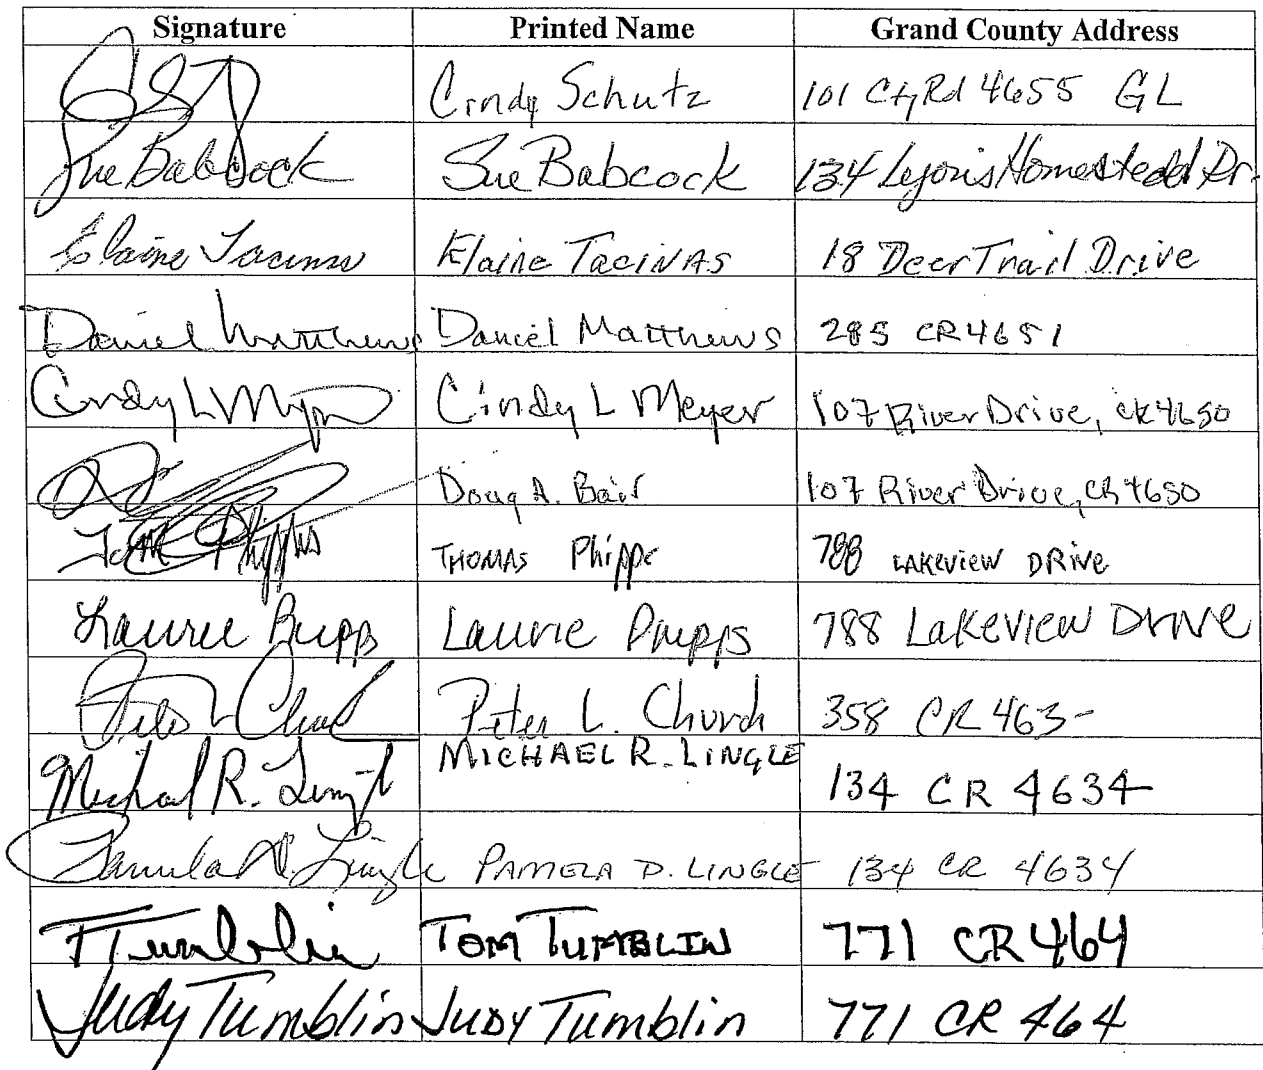 Signature Printed Name Grand County Address
Cindy Schutz 101 Cty Rd 4655 GL
Sue Babcock Sue Babcock 134 Lyons Homestead Dr.
Elaine Tacinas Elaine TaciNAS 18 Deer Trail Drive
Daniel Matthews Daniel Matthews 285 CR 4651
Cindy L Meyer Cindy L Meyer 107 River Drive, CR 4650
Doug A. 107 River Drive, CR 4650
Tom Phipps THOMAS Phipps 788 LAKEVIEW DRIVE
Laurie Phipps Laurie Phipps 788 Lakeview Drive
Peter L Church Peter L. Church 358 CR 463-
Michael R. Lingle MICHAEL R. LINGLE 134 CR 4634
Pamela D. Lingle PAMELA D. LINGLE 134 CR 4634
T Tumblin TOM TUMBLIN 771 CR 464
Judy Tumblin JUDY Tumblin 771 CR 464